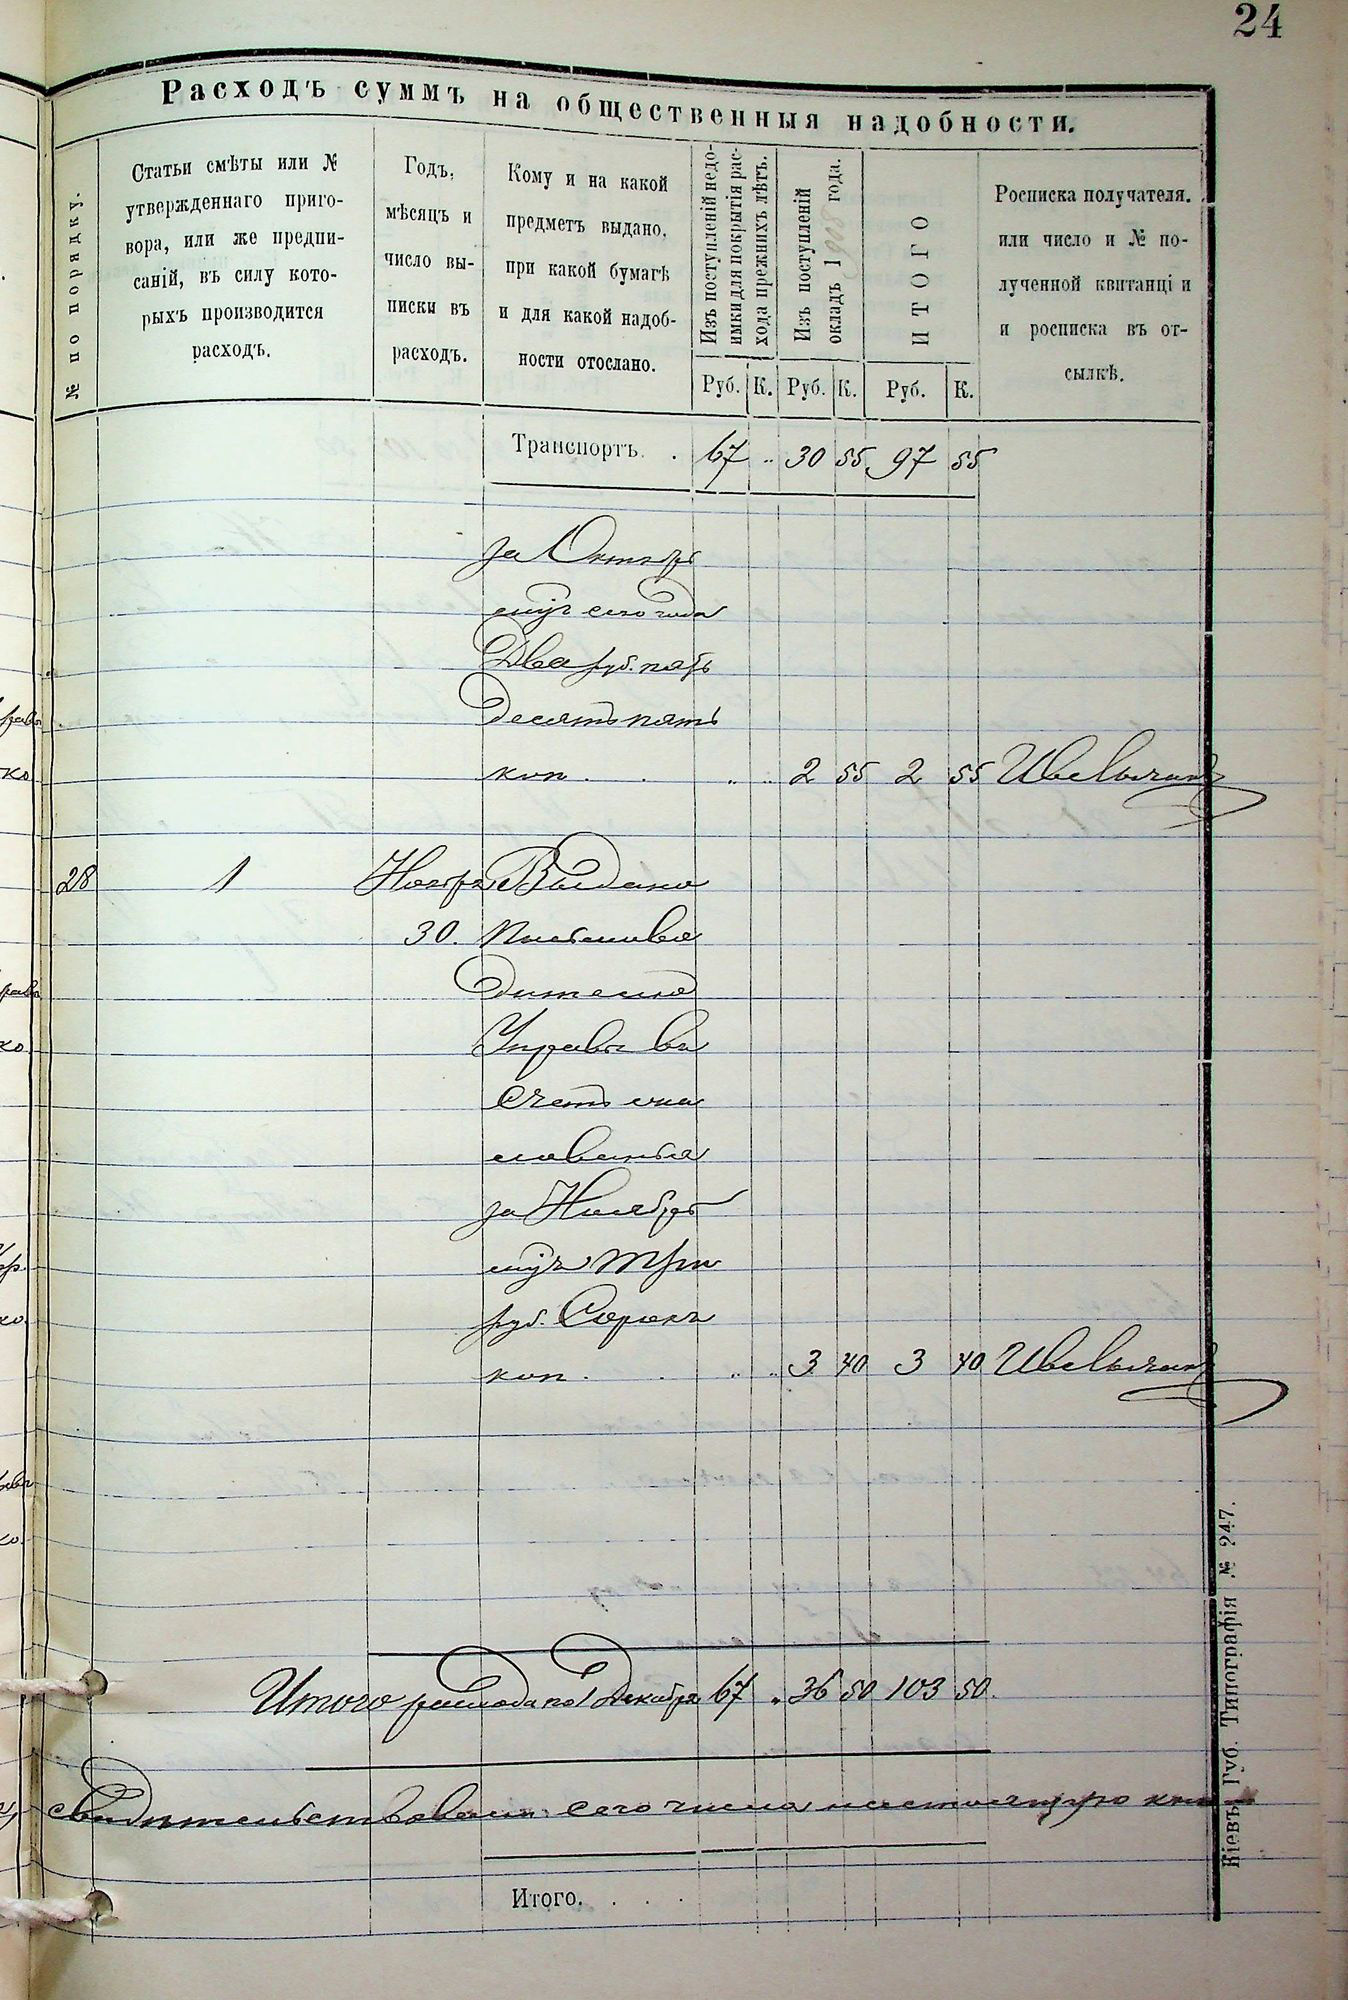 24
Расходъ суммъ на общественныя надобности.
№ по порядку.
Статьи смѣты или №
утвержденнаго приго-
вора, или же предпи-
саній, въ силу кото-
рыхъ производится
расходъ.
Годъ,
мѣсяцъ и
число вы-
писки въ
расходъ.
Кому и на какой
предметъ выдано,
при какой бумагѣ
и для какой надоб-
ности отослано.
Изъ поступленій недо-
имки для покрытія рас-
хода прежнихъ лѣтъ.
Изъ поступленій
окладъ 1908 года.
ИТОГО
Росписка получателя,
или число и № по-
лученной квитанціи
и росписка въ от-
сылкѣ.
Руб. К. Руб. К. Руб. К.
Транспортъ. . 67 „ 30 55 97 55
за Октябрь
сего года
Два руб. пять
десятъ пять
коп. . . „ „ 2 55 2 55
28 1 Ноября Выдано
30.
Управы въ
Счетъ
за Ноябрь
Три
руб. Сорокъ
коп. . . „ „ 3 40 3 40
Итого расхода по 1 Декабря 67 „ 36 50 103 50.
Свидѣтельствовали сего числа настоящую
Итого. . . .
Кіевъ, Губ. Типографія № 247.